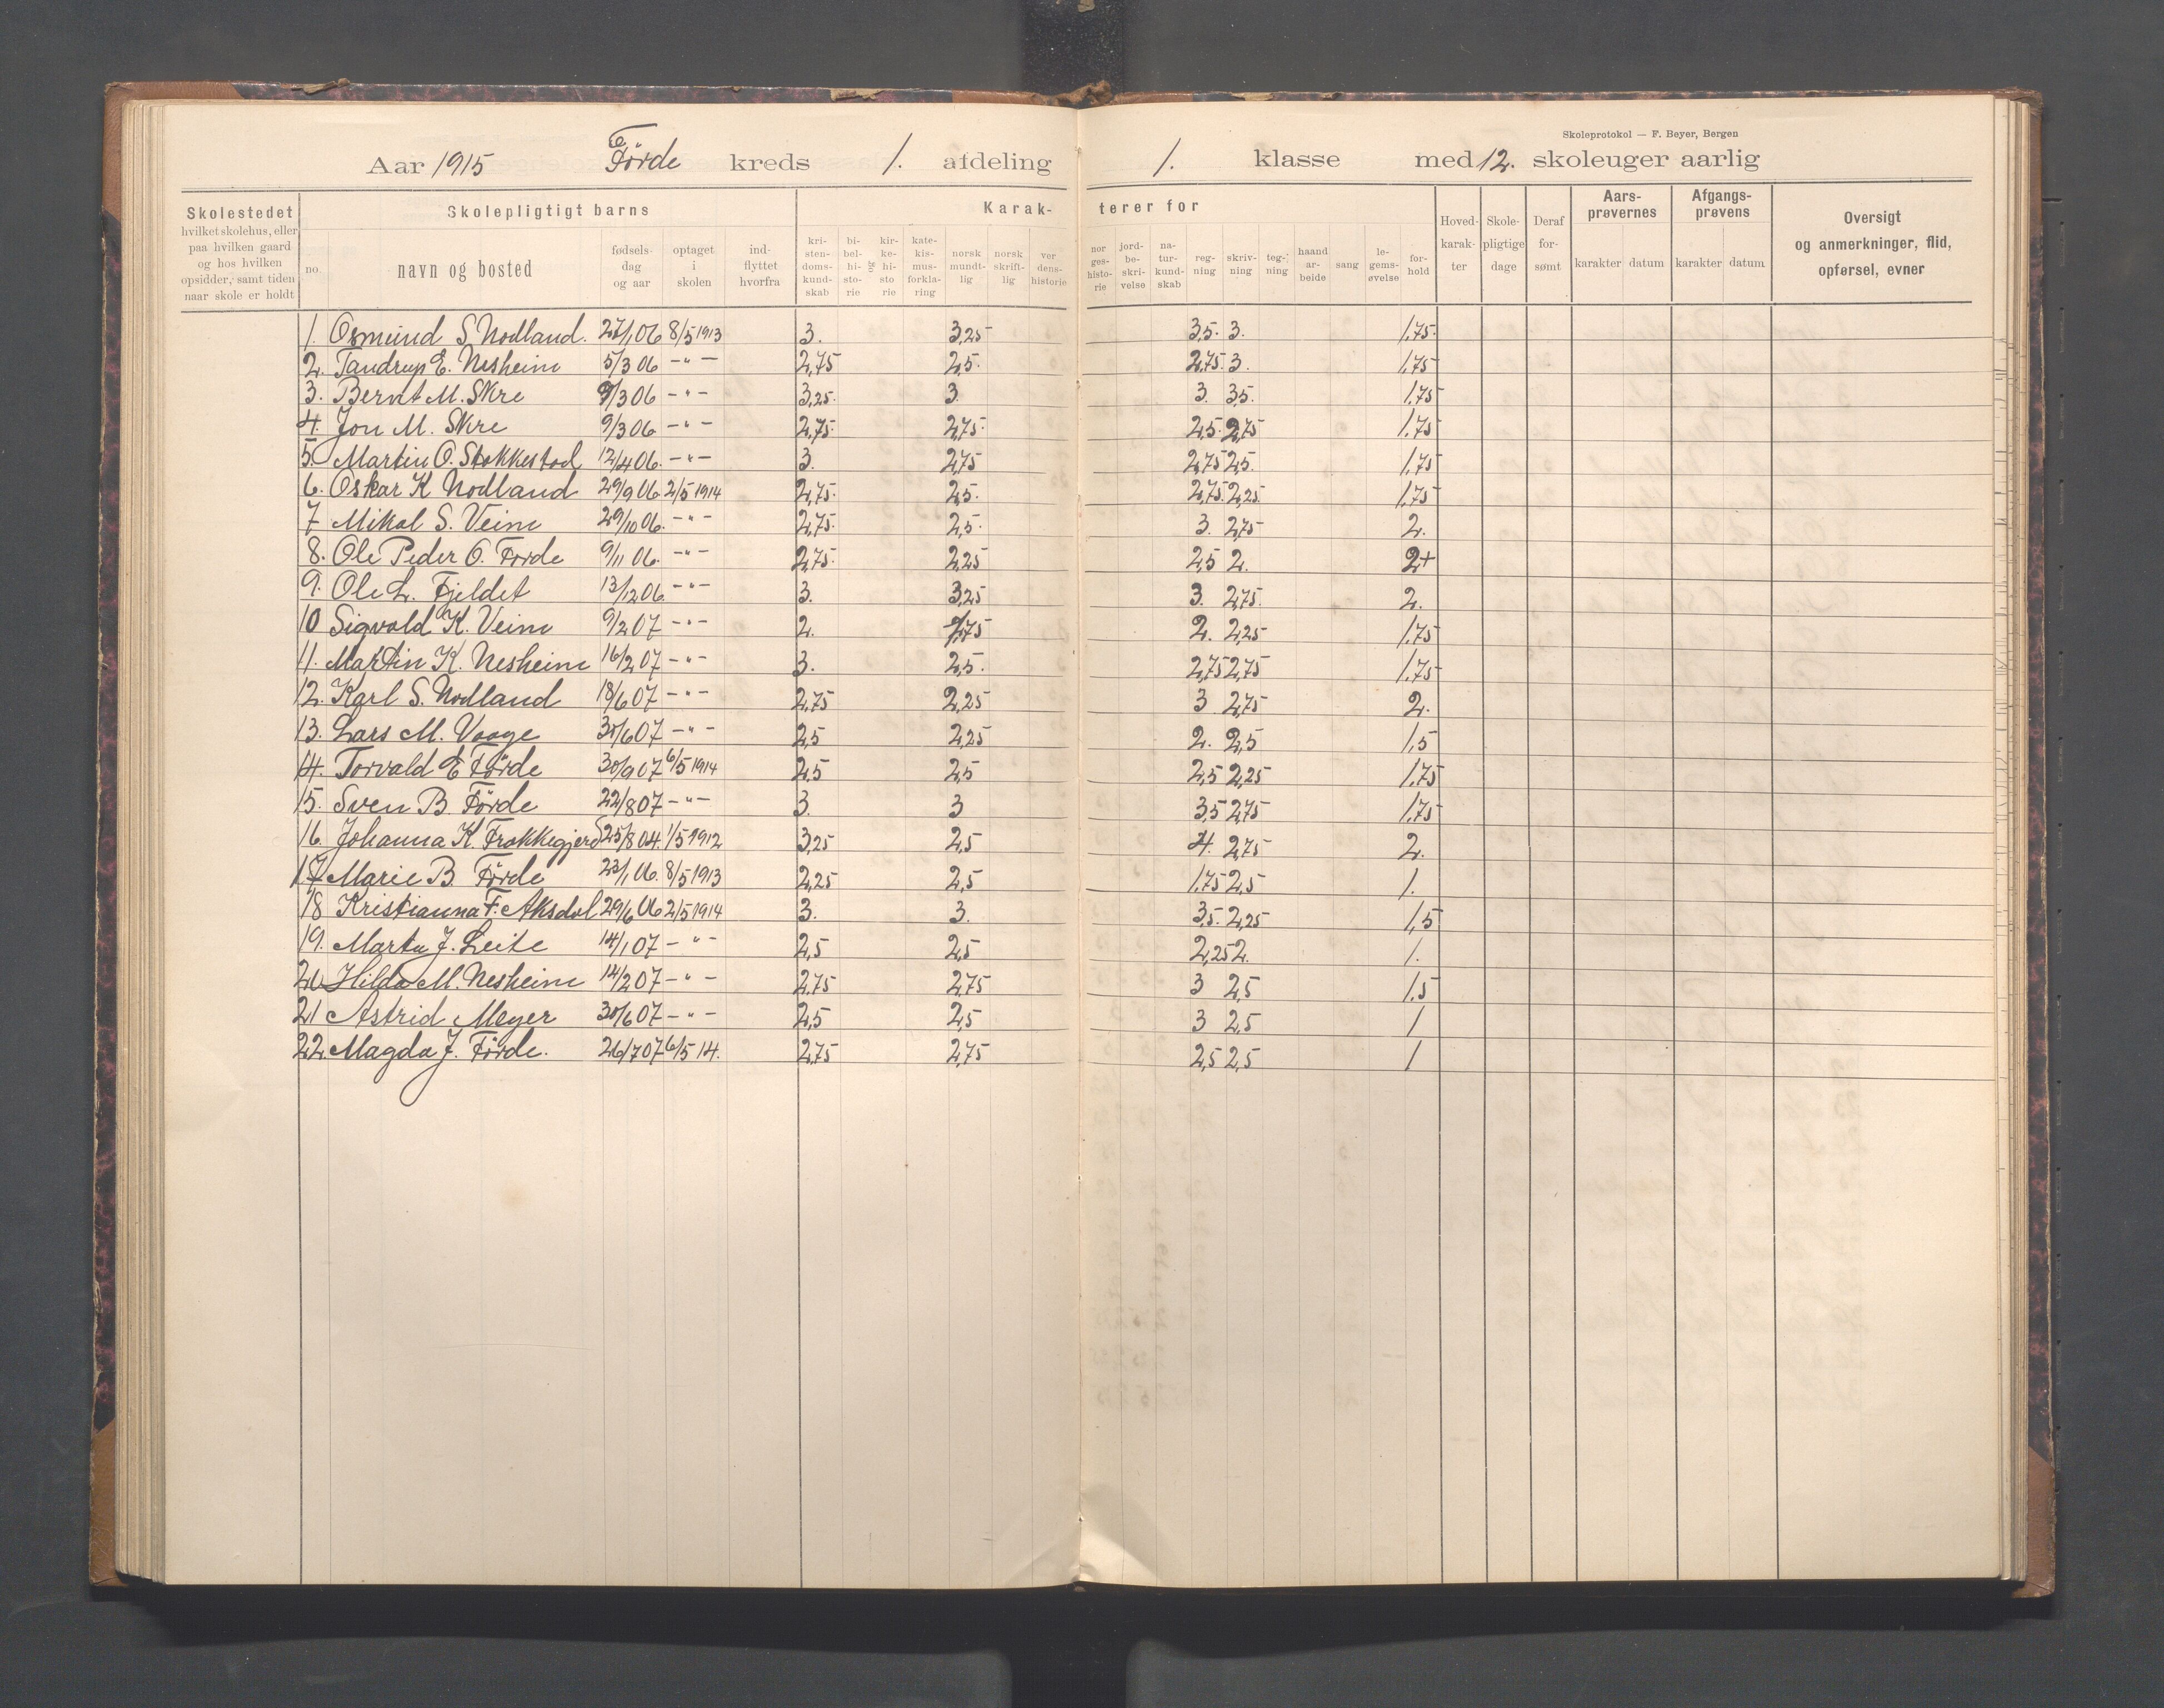 Skoleprotokol — F. Beyer, Bergen
Aar 1915 Førde kreds 1. afdeling 1. klasse med 12. skoleuger aarlig
Skolestedet hvilket skolehus, eller paa hvilken gaard og hos hvilken opsidder, samt tiden naar skole er holdt
Skolepligtigt barns
no. navn og bosted fødselsdag og aar optaget i skolen indflyttet hvorfra
Karakterer for
kristendomskundskab bibelhistorie kirkehistorie katekismusforklaring norsk mundtlig norsk skriftlig verdenshistorie norgeshistorie jordbeskrivelse naturkundskab regning skrivning tegning haandarbeide sang legemsøvelse forhold
Hovedkarakter Skolepligtige dage Deraf forsømt
Aarsprøvernes karakter datum
Afgangsprøvens karakter datum
Oversigt og anmerkninger, flid, opførsel, evner
1. Osmund S. Nodland. 27/1 06 8/5 1913 3. 3,25 3,5. 3. 1,75.
2. Tandrup E. Nesheim 5/3 06 -"- 2,75 2,5. 2,75. 3. 1,75
3. Bernt M. Skre 9/3 06 -"- 3,25. 3. 3. 3,5. 1,75
4. Jon M. Skre 9/3 06 -"- 2,75. 2,75. 2,5. 2,75 1,75
5. Martin O. Stokkestad 12/4 06. -"- 3. 2,75 2,75 2,5. 1,75
6. Oskar K Nodland 29/9 06. 2/5 1914 2,75. 2,5. 2,75. 2,25. 1,75
7 Mikal S. Veim 29/10 06. -"- 2,75. 2,5. 3. 2,75 2.
8. Ole Peder O. Førde 9/11 06. -"- 2,75. 2,25 2,5 2. 2+
9. Ole L. Fjeldet 13/12 06. -"- 3. 3,25 3. 2,75. 2.
10 Sigvald K. Veim 9/2 07 -"- 2. 1,75 2. 2,25 1,75
11. Martin K. Nesheim 16/2 07 -"- 3. 2,5. 2,75 2,75 1,75
12. Karl S. Nodland 18/6 07 -"- 2,75 2,25 3 2,75 2.
13. Lars M. Vaage 30/6 07 -"- 2,5 2,25 2. 2,5 1,5
14. Torvald E Førde 30/9 07 6/5 1914 2,5 2,5 2,5 2,25 1,75
15. Sven B. Førde 22/8 07 -"- 3. 3 3,5 2,75 1,75
16. Johanna K. Frakkagjerd 25/8 04. 1/5 1912 3,25 2,5 4. 2,75 2.
17 Marie B. Førde 23/1 06. 8/5 1913 2,25 2,5 1,75 2,5 1.
18 Kristianna F. Aksdal 29/6 06 2/5 1914 3. 3. 3,5. 2,25 1,5
19. Marta J. Leite 14/1 07 -"- 2,5 2,5 2,25 2. 1.
20 Hilda M. Nesheim 14/2 07 -"- 2,75 2,75 3 2,5 1,5
21 Astrid Meyer 30/6 07 -"- 2,5 2,5 3 2,5 1
22. Magda J. Førde. 26/7 07 6/5 14. 2,75 2,75 2,5 2,5 1